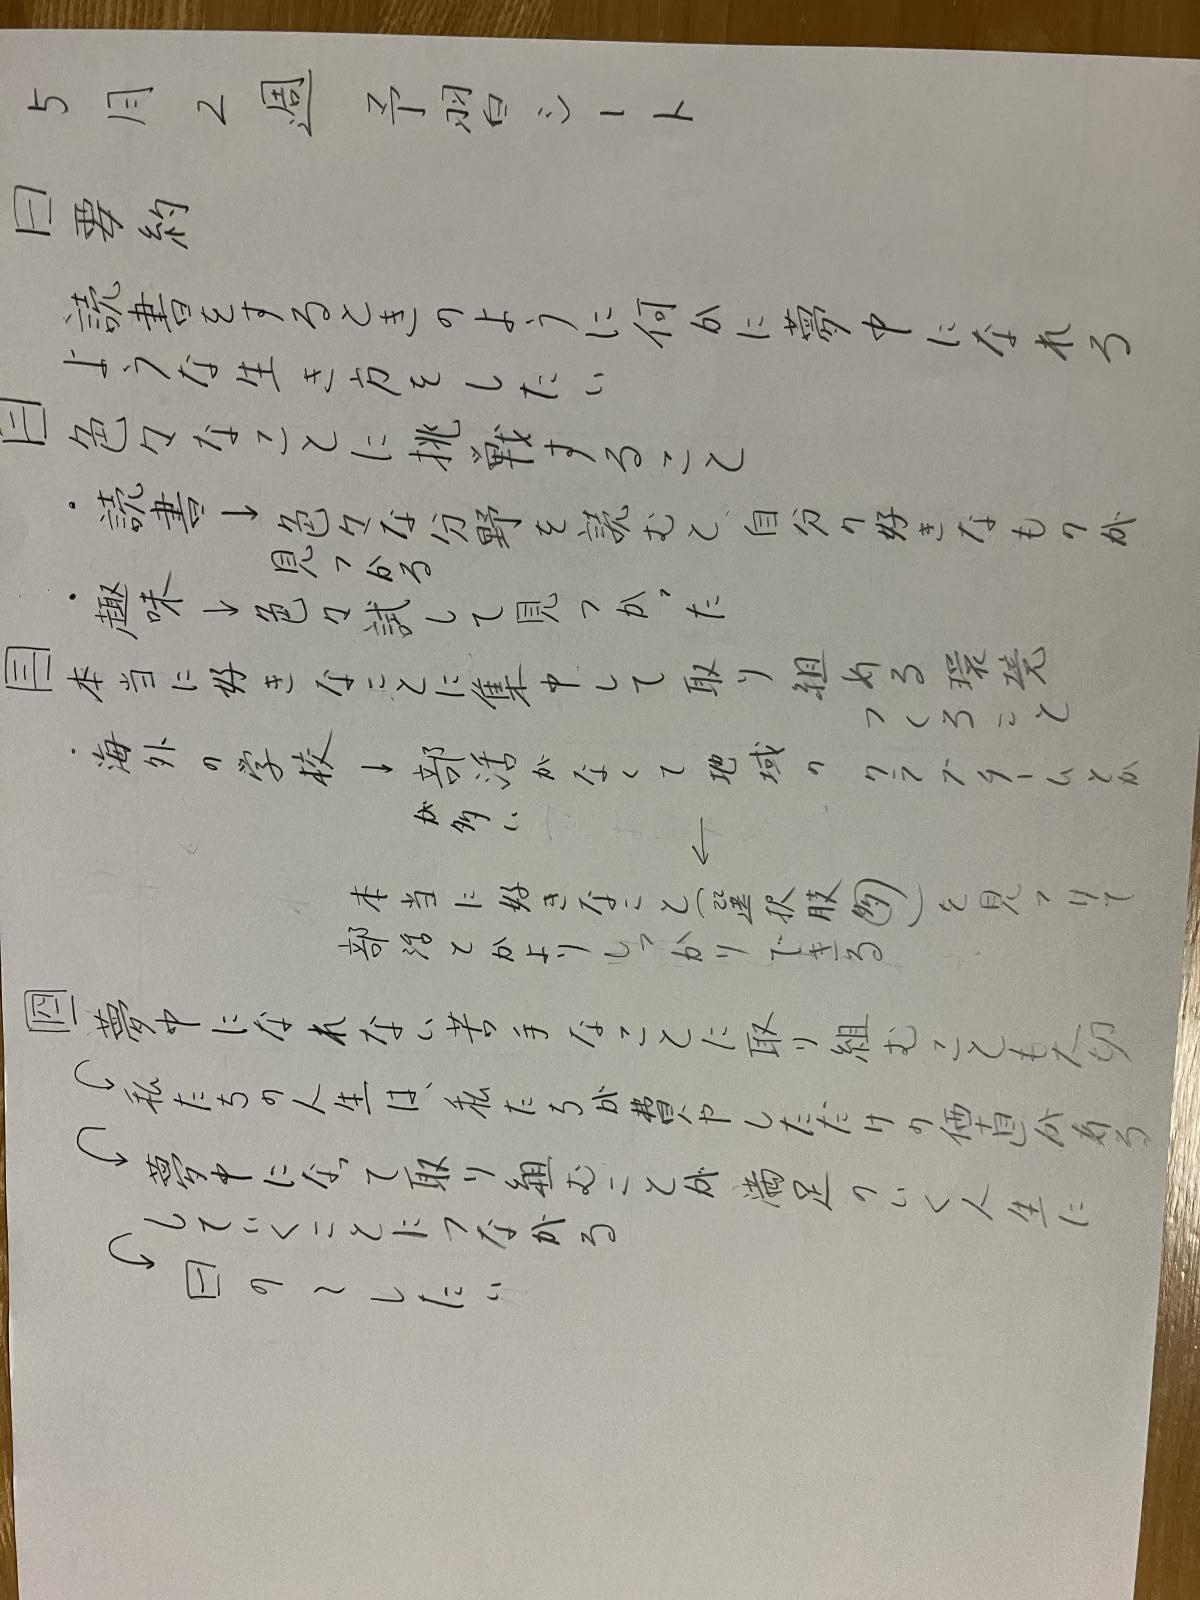 5月2週 予習シート
一 要約
読書をするときのように何かに夢中になれる
ような生き方をしたい
二 色々なことに挑戦すること
・読書→色々な分野を読むと、自分の好きなものが
見つかる
・趣味→色々試して見つかった
三 本当に好きなことに集中して取り組める環境
つくること
・海外の学校→部活がなくて地域のクラブチームとか
が多い
↓
本当に好きなこと(選択肢多)を見つけて
部活とかよりしっかりできる
四 夢中になれない苦手なことに取り組むことも大切
私たちの人生は、私たちが費やしただけの価値がある
夢中になって取り組むことが満足のいく人生に
していくことにつながる
一の〜したい